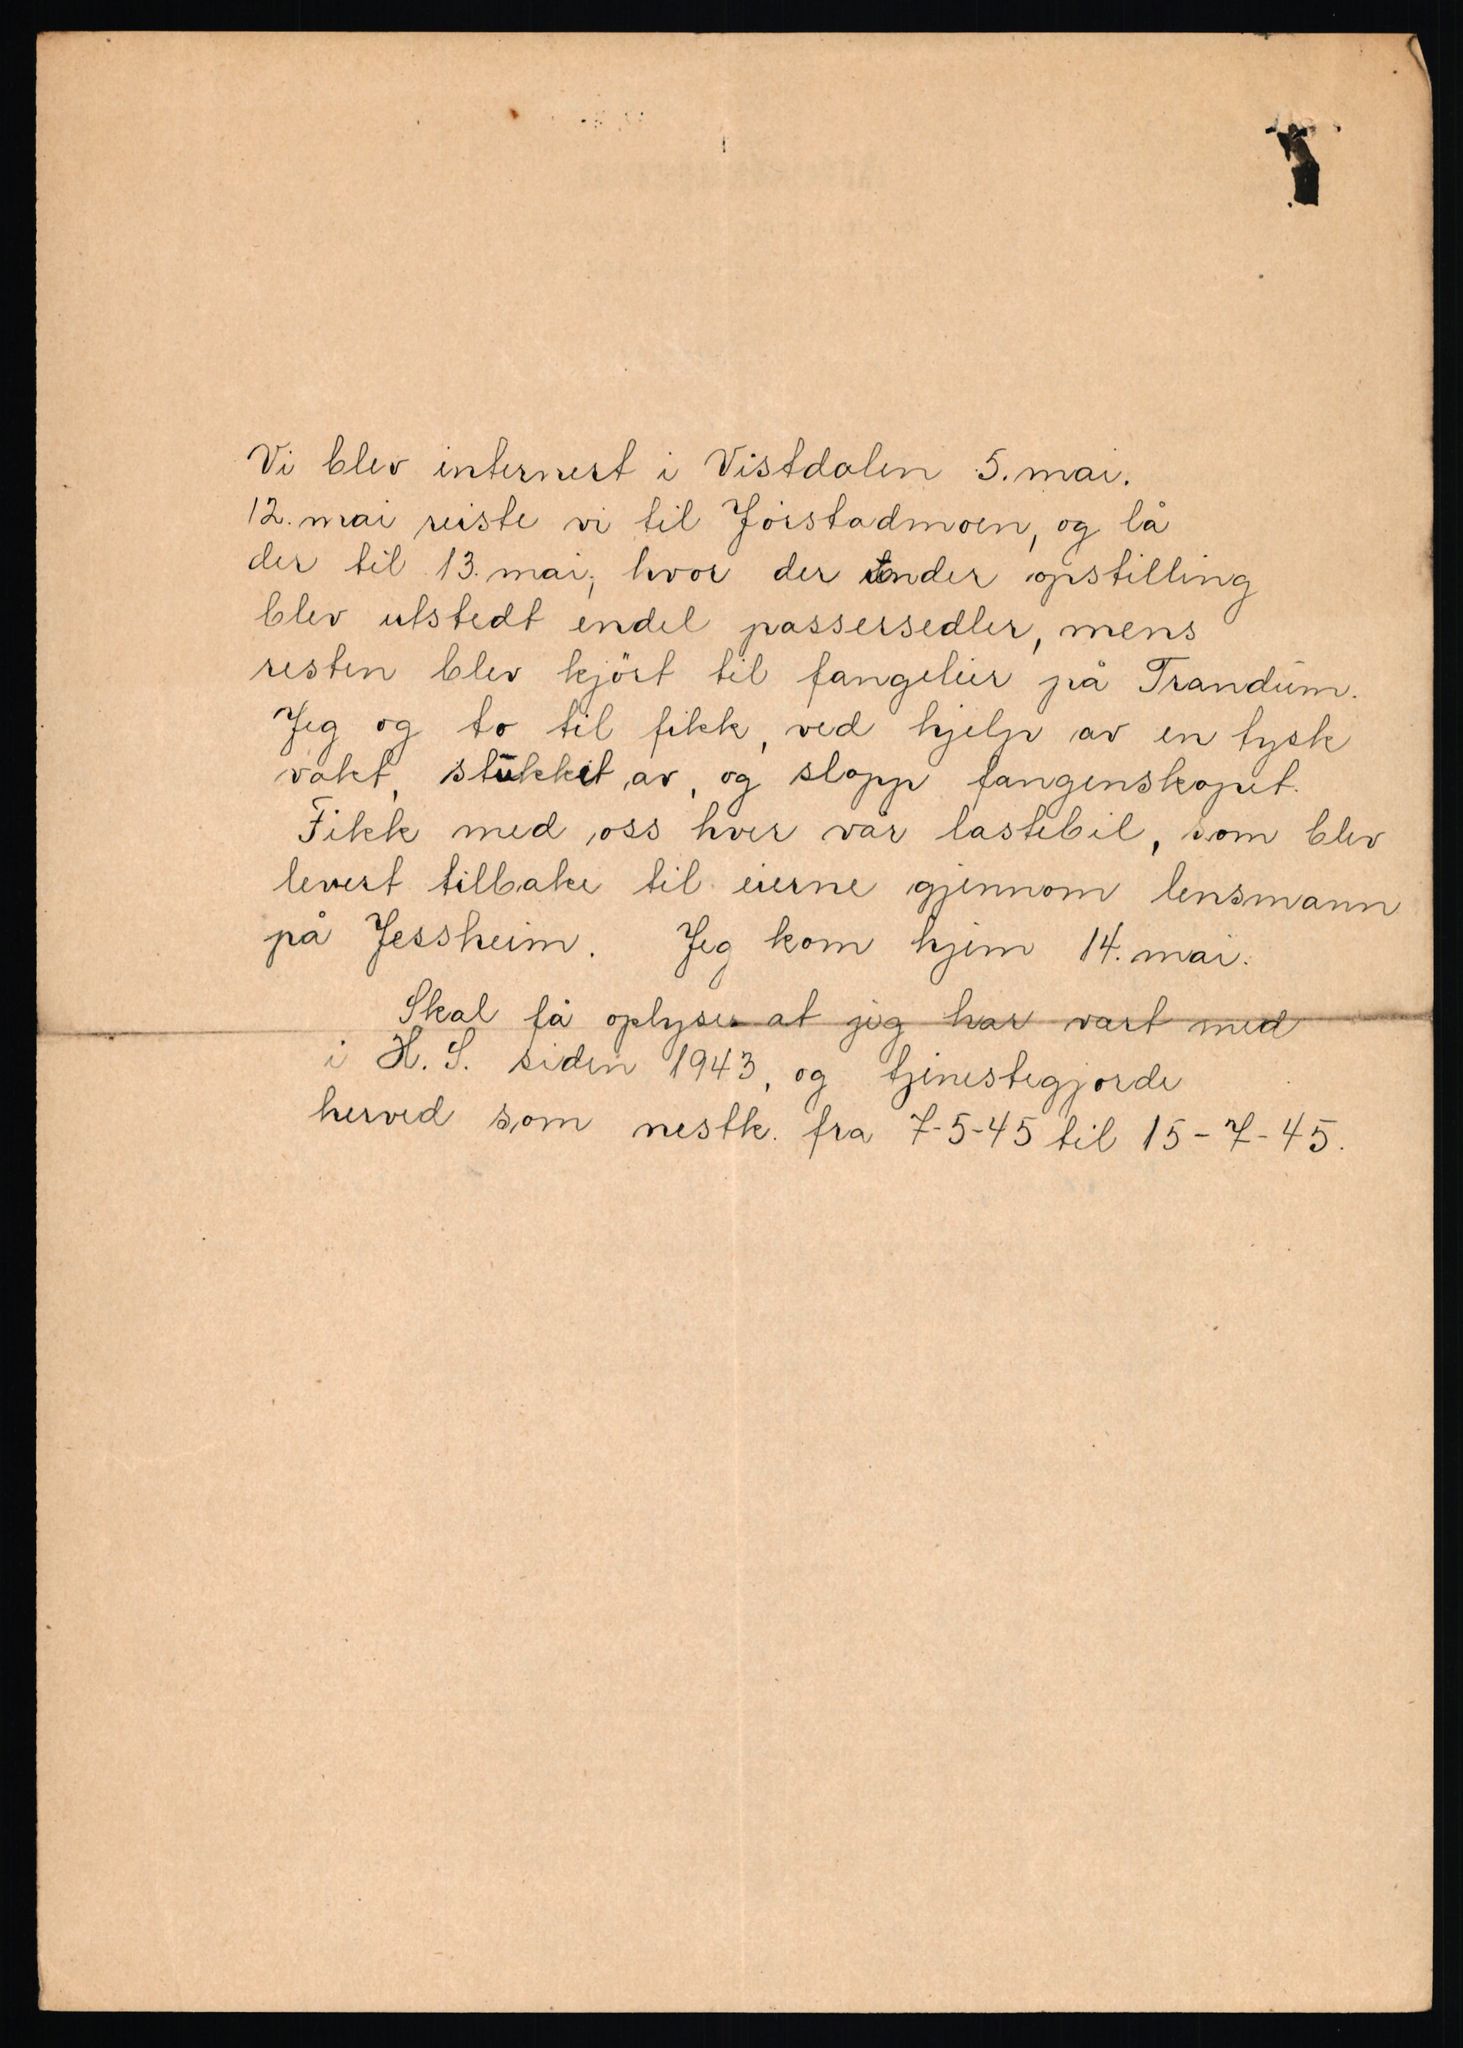 Vi blev internert i Vistdalen 5. mai.
12. mai reiste vi til Jørstadmoen, og lå
der til 13. mai, hvor der under opstilling
blev utstedt endel passersedler, mens
resten blev kjört til fangeleir på Trandum.
Jeg og to til fikk, ved hjelp av en tysk
vakt, stukket av, og slapp fangenskapet.
Fikk med oss hver vår lastebil, som blev
levert tilbake til eierne gjennom lensmann
på Jessheim. Jeg kom hjem 14. mai.
Skal få oplyse at jeg har vært med
i H. S. siden 1943, og tjenestegjorde
herved som nestk. fra 7-5-45 til 15-7-45.